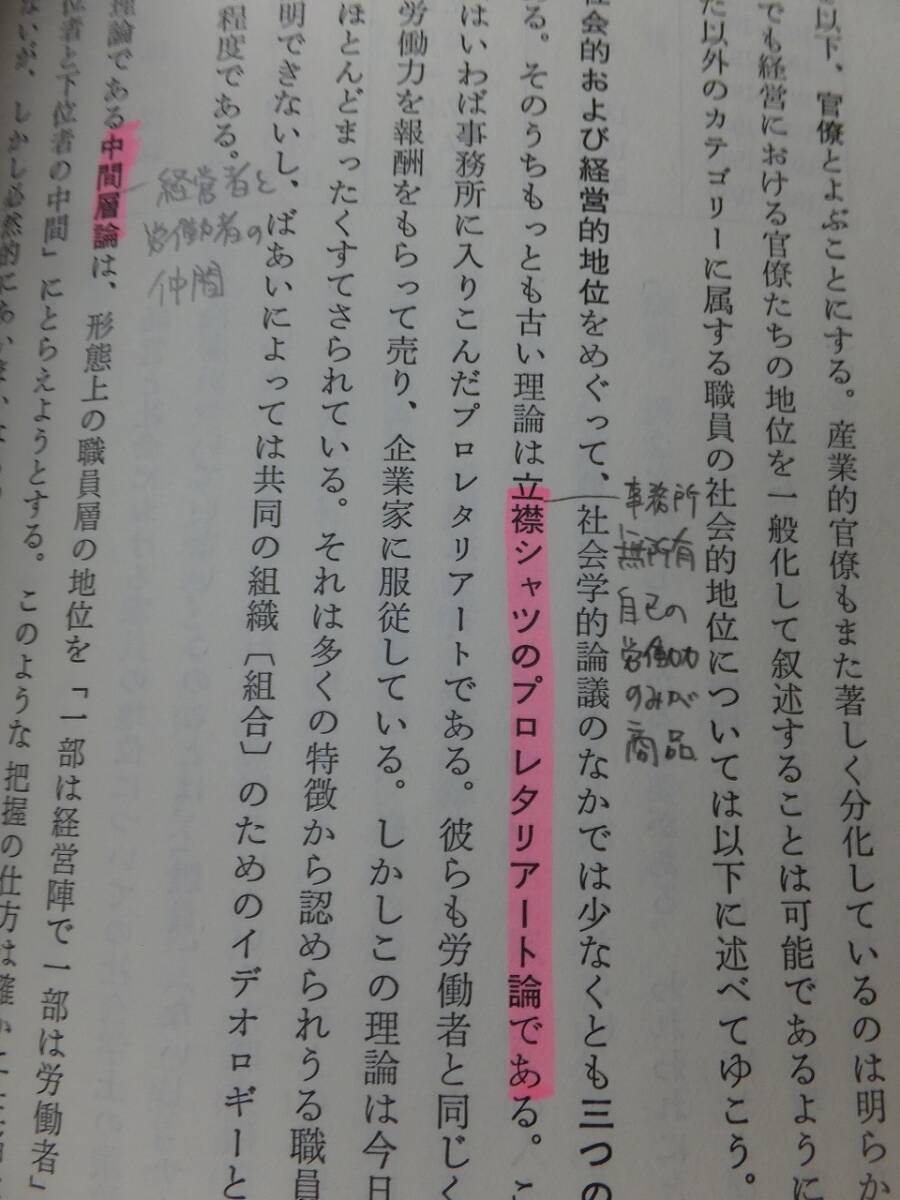 以下、官僚とよぶことにする。産業的官僚もまた著しく分化しているのは明らか
でも経営における官僚たちの地位を一般化して叙述することは可能であるように
た以外のカテゴリーに属する職員の社会的地位については以下に述べてゆこう。
事務所
無所有
自己の
労働力
のみが
商品
社会的および経営的地位をめぐって、社会学的論議のなかでは少なくとも三つの
る。そのうちもっとも古い理論は立襟シャツのプロレタリアート論である。こ
はいわば事務所に入りこんだプロレタリアートである。彼らも労働者と同じく
労働力を報酬をもらって売り、企業家に服従している。しかしこの理論は今日
ほとんどまったくすてさられている。それは多くの特徴から認められうる職員
明できないし、ばあいによっては共同の組織〔組合〕のためのイデオロギーと
程度である。
経営者と
労働者の
仲間
理論である中間層論は、形態上の職員層の地位を「一部は経営陣で一部は労働者」
位者と下位者の中間」にとらえようとする。このような把握の仕方は確かに
ないが、しかし必然的にあいま